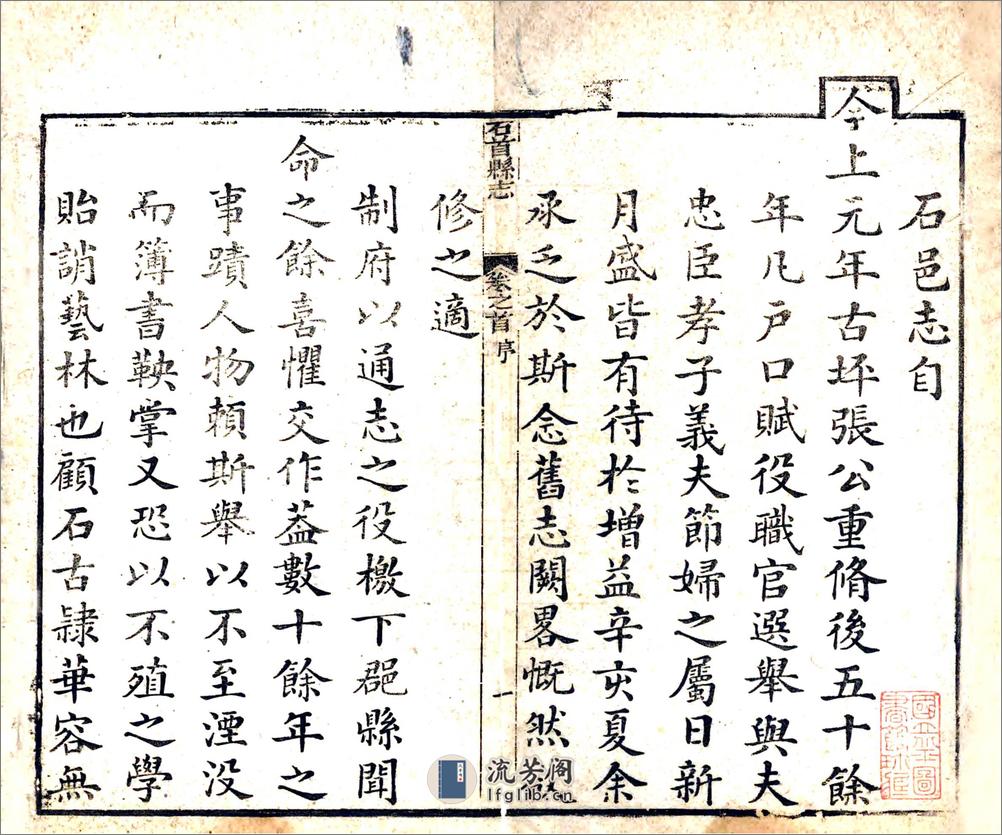 石邑志自
今上元年古坪張公重脩後五十餘
年凡戶口賦役職官選舉與夫
忠臣孝子義夫節婦之屬日新
月盛皆有待於增益辛亥夏余
承乏於斯念舊志闕畧慨然
石首縣志 卷之首 序 一
修之適
制府以通志之役檄下郡縣聞
命之餘喜懼交作葢數十餘年之
事蹟人物頼斯舉以不至湮没
而簿書鞅掌又恐以不殖之學
貽誚藝林也顧石古隸華容無
流芳阁
lfglib.cn